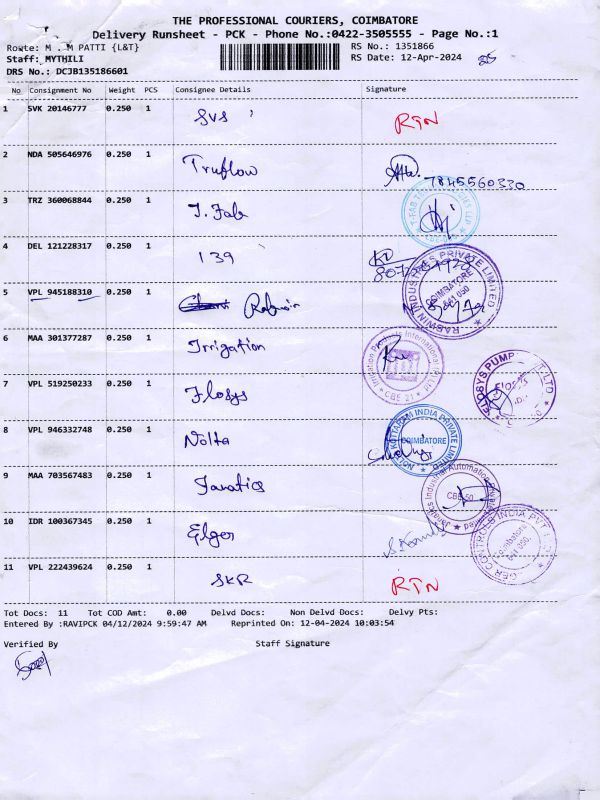 THE PROFESSIONAL COURIERS, COIMBATORE
Delivery Runsheet - PCK - Phone No.:0422-3505555 - Page No.:1
Route: M . M PATTI {L&T} RS No.: 1351866
Staff: MYTHILI RS Date: 12-Apr-2024
DRS No.: DCJB135186601
No Consignment No Weight PCS Consignee Details Signature
1 SVK 20146777 0.250 1 SVS RTN
2 NDA 505646976 0.250 1 Truflow 7845560330
3 TRZ 360068844 0.250 1 T. Fab
4 DEL 121228317 0.250 1 139
5 VPL 945188310 0.250 1 Rabwin
RABWIN INDUSTRIES PRIVATE LIMITED
COIMBATORE
641 050
6 MAA 301377287 0.250 1 Irrigation
Irrigation Products International (P) LTD
CBE 21
7 VPL 519250233 0.250 1 Flosys
8 VPL 946332748 0.250 1 Nolta
COIMBATORE
9 MAA 703567483 0.250 1 Janatics
CBE 50
10 IDR 100367345 0.250 1 Elger
Coimbatore
641 050.
11 VPL 222439624 0.250 1 SKR RTN
Tot Docs: 11 Tot COD Amt: 0.00 Delvd Docs: Non Delvd Docs: Delvy Pts:
Entered By :RAVIPCK 04/12/2024 9:59:47 AM Reprinted On: 12-04-2024 10:03:54
Verified By Staff Signature